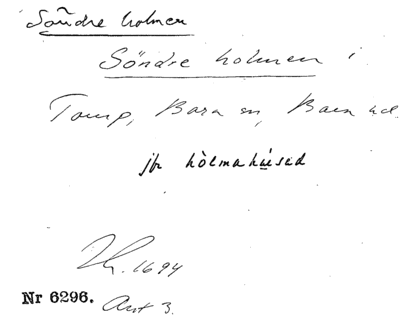 Söndre holmen
Söndre holmen i
Tomp, Bara sn, Bara hd.
jfr hòlmahúsed
1694
Nr 6296. Avt 3.